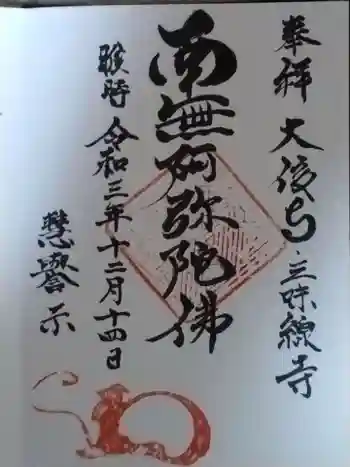 奉拝 大後ち三味線寺
南無阿弥陀佛
睺時 令和三年十二月十四日
慧譽示